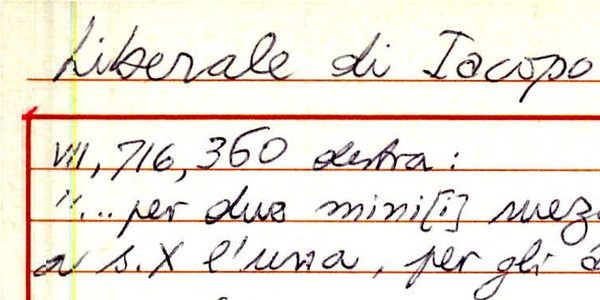 Liberale di Iacopo
VII, 716, 360 destra:
"... per due mini[i] mez
a s. X l'una, per gli